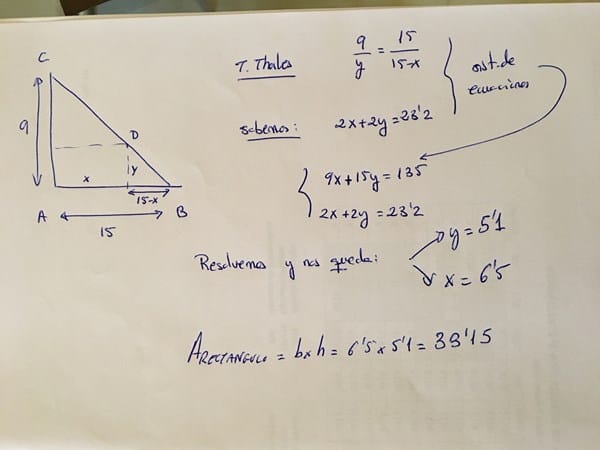 C
9
D
x
y
15-x
A
B
15
T. Thales
9/y = 15/15-x
sist. de
ecuaciones
sabemos: 2x+2y=23'2
9x+15y=135
2x+2y=23'2
Resolvemos y nos queda:
y=5'1
x=6'5
ARECTANGULO = bxh = 6'5 x 5'1 = 33'15